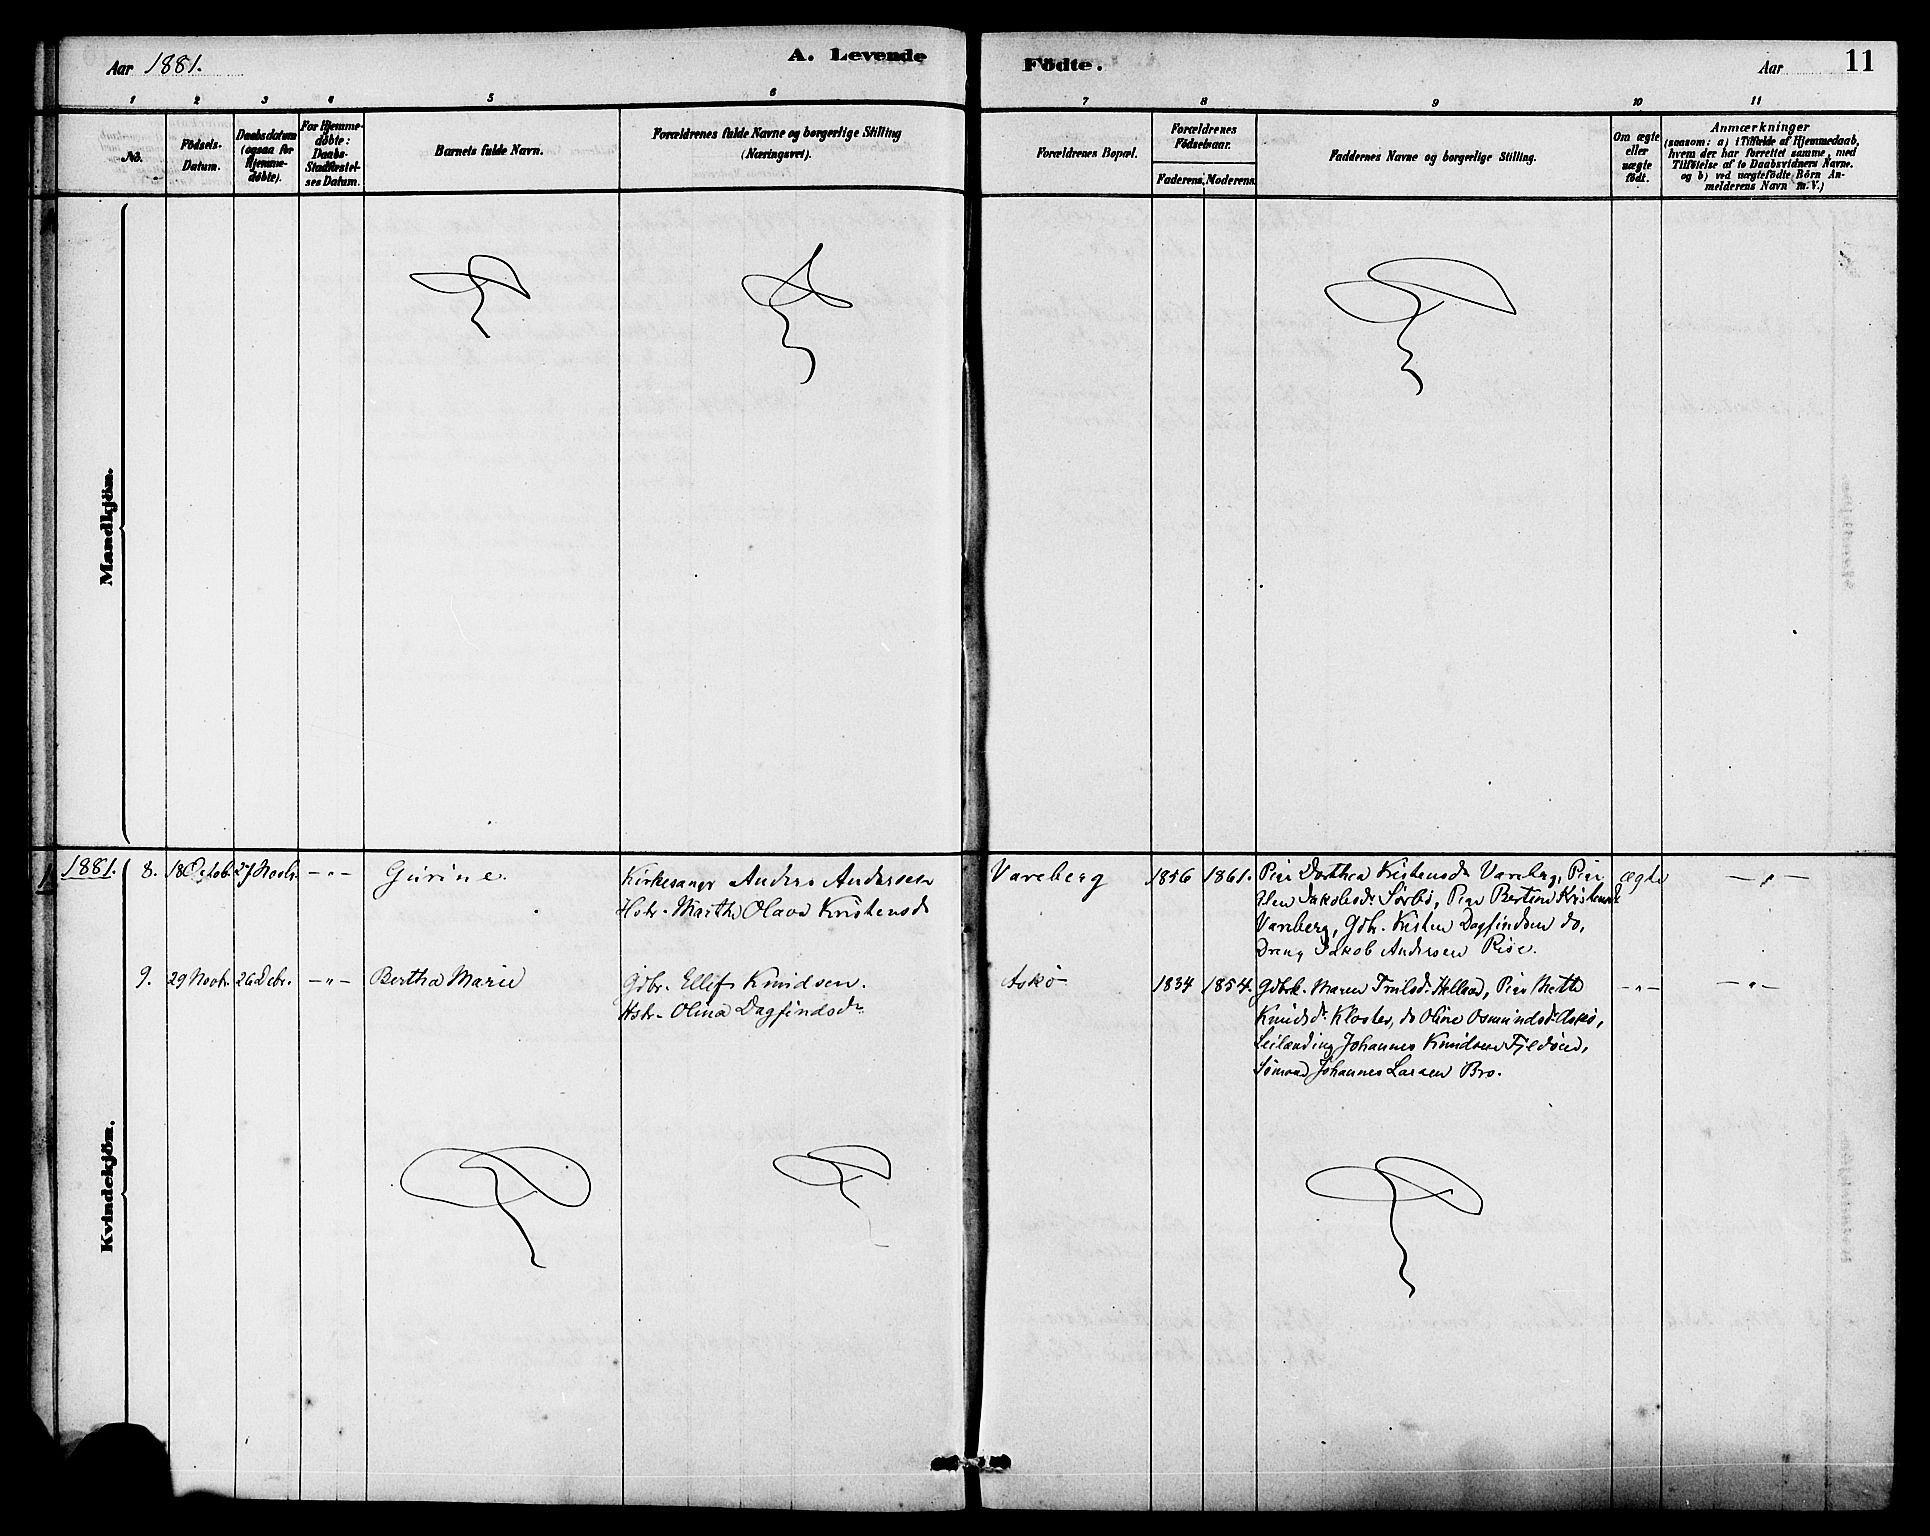 Aar 1881.
A. Levende
Födte.
Aar
11
1 2 3 4 5 6 7 8 9 10 11
No.
Födsels-
Datum.
Daabsdatum
(ogsaa for
Hjemme-
døbte).
For Hjemme-
døbte:
Daabs-
Stadfæstel-
ses Datum.
Barnets fulde Navn.
Forældrenes fulde Navne og borgerlige Stilling
(Næringsvei).
Forældrenes Bopæl.
Forældrenes
Födselsaar.
Faderens. Moderens.
Faddernes Navne og borgerlige Stilling.
Om ægte
eller
uægte
födt.
Anmærkninger
(saasom: a) i Tilfælde af Hjemmedaab,
hvem der har forrettet samme, med
Tilföielse af to Daabsvidners Navne.
og b) ved uægtefödte Börn An-
melderens Navn m. V.)
Mandkjön.
Kvindekjön.
1881. 8. 18 Octob. 27 Novbr. -"-
Gurine.
Kirkesanger Anders Andersen
Hstr. Marthe Olava Kristensd
Vareberg
1856 1861.
Pige Dorthea Kristensdr Vareberg, Pige
Elen Jakobsdr Sørbø, Pige Bertine Kristensd
Vareberg, Gbr. Kristen Dagfindsen do,
Dreng Jakob Andersen Rise.
ægte
-"-
9. 29 Novbr. 26 Debr. -"-
Bertha Marie
Gdbr. Ellef Knudsen.
Hstr. Olina Dagfindsdr
Askø
1834 1854.
Gdbrk. Maren Trulsdr Helland, Pige Mette
Knudsdr Kloster, do Oline Osmundsdr Askø,
Leilænding Johannes Knudsen Fjeldøen,
Sømand Johannes Larsen Bro.
-"-
-"-